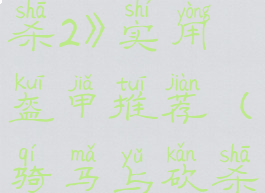 shā shí yòng
杀2》实用
kuī jiǎ tuī jiàn
盔甲推荐（
qí mǎ yǔ kǎn shā
骑马与砍杀